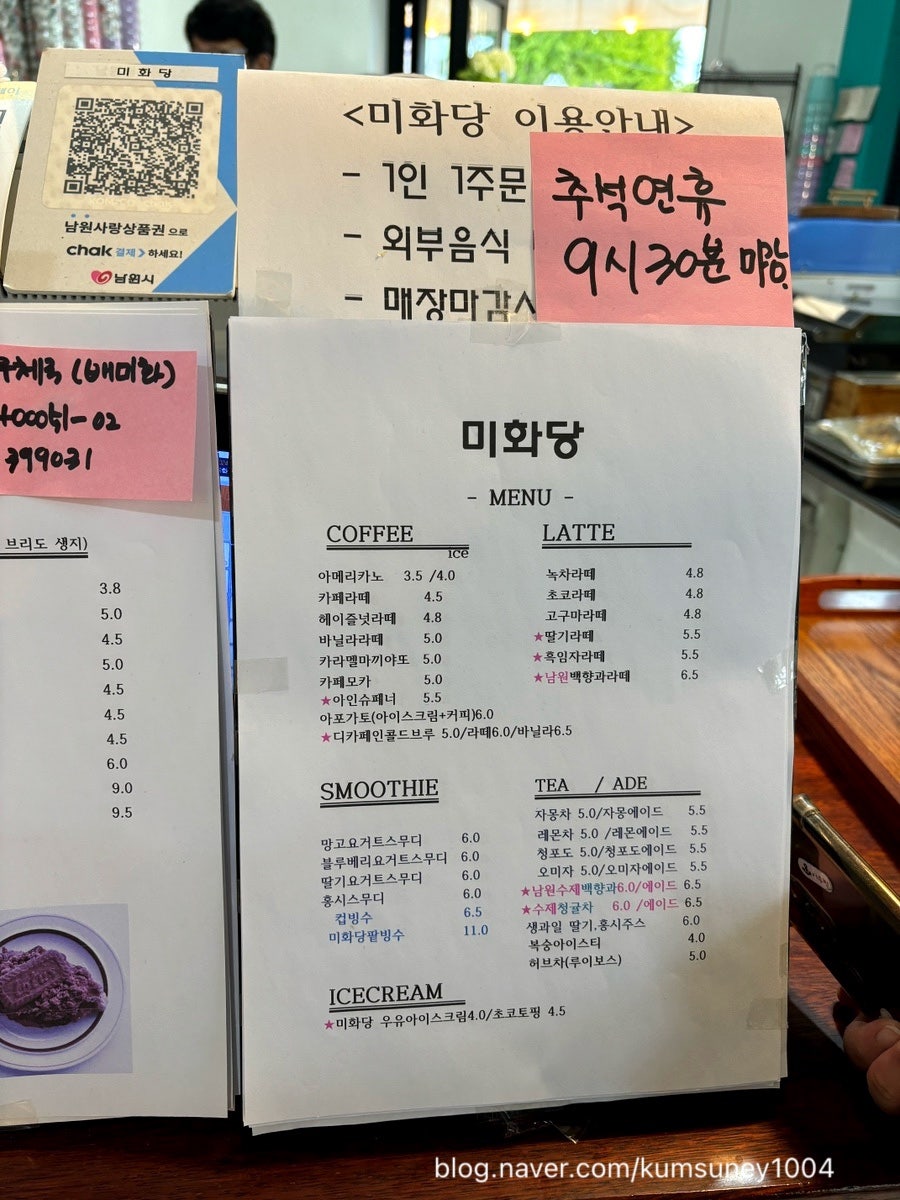 미화당
남원사랑상품권으로
chak 결제 > 하세요!
남원시
<미화당 이용안내>
- 1인 1주문
- 외부음식
- 매장마감시
추석연휴
9시30분 마감
우체국 (배미화)
399031
브리도 생지)
3.8
5.0
4.5
5.0
4.5
4.5
4.5
6.0
9.0
9.5
미화당
- MENU -
COFFEE
ice
아메리카노 3.5 /4.0
카페라떼 4.5
헤이즐넛라떼 4.8
바닐라라떼 5.0
카라멜마끼야또 5.0
카페모카 5.0
★아인슈페너 5.5
아포가토(아이스크림+커피)6.0
★디카페인콜드브루 5.0/라떼6.0/바닐라6.5
LATTE
녹차라떼 4.8
초코라떼 4.8
고구마라떼 4.8
★딸기라떼 5.5
★흑임자라떼 5.5
★남원백향과라떼 6.5
SMOOTHIE
망고요거트스무디 6.0
블루베리요거트스무디 6.0
딸기요거트스무디 6.0
홍시스무디 6.0
컵빙수 6.5
미화당팥빙수 11.0
TEA / ADE
자몽차 5.0/자몽에이드 5.5
레몬차 5.0 /레몬에이드 5.5
청포도 5.0/청포도에이드 5.5
오미자 5.0/오미자에이드 5.5
★남원수제백향과6.0/에이드 6.5
★수제청귤차 6.0 /에이드 6.5
생과일 딸기.홍시주스 6.0
복숭아이스티 4.0
허브차(루이보스) 5.0
ICECREAM
★미화당 우유아이스크림4.0/초코토핑 4.5
blog.naver.com/kumsuney1004